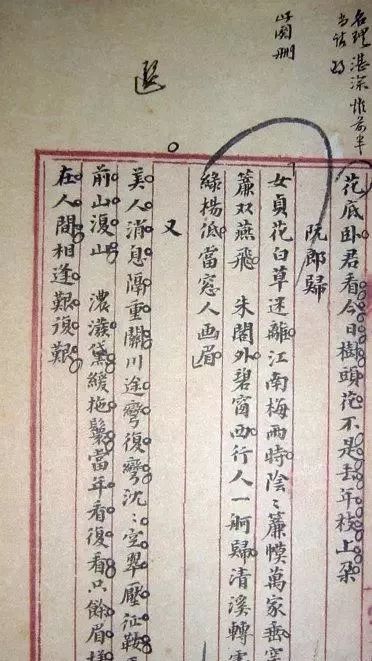 名理湛深惟前半
此闋刪
選
花底卧君看今日樹頭花不是去年枝上朶
阮郎歸
女貞花白草迷離江南梅雨時陰〻簾幙萬家垂穿
簾双燕飛 朱閣外碧窗西行人一舸歸清溪轉
綠楊低當窓人画眉
又
美人消息隔重關川途彎復彎沈〻空翠壓征鞍
前山復山 濃潑黛緩拖鬟當年看復看只餘眉樣
在人間相逢艱復艱